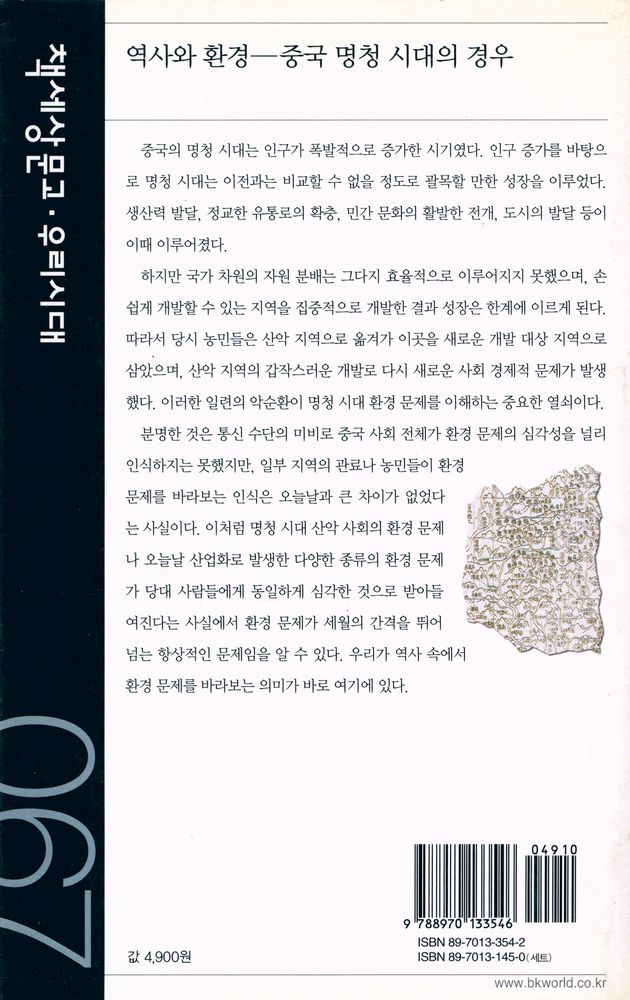 책세상문고·우리시대
067
역사와 환경—중국 명청 시대의 경우
중국의 명청 시대는 인구가 폭발적으로 증가한 시기였다. 인구 증가를 바탕으
로 명청 시대는 이전과는 비교할 수 없을 정도로 괄목할 만한 성장을 이루었다.
생산력 발달, 정교한 유통로의 확충, 민간 문화의 활발한 전개, 도시의 발달 등이
이때 이루어졌다.
하지만 국가 차원의 자원 분배는 그다지 효율적으로 이루어지지 못했으며, 손
쉽게 개발할 수 있는 지역을 집중적으로 개발한 결과 성장은 한계에 이르게 된다.
따라서 당시 농민들은 산악 지역으로 옮겨가 이곳을 새로운 개발 대상 지역으로
삼았으며, 산악 지역의 갑작스러운 개발로 다시 새로운 사회 경제적 문제가 발생
했다. 이러한 일련의 악순환이 명청 시대 환경 문제를 이해하는 중요한 열쇠이다.
분명한 것은 통신 수단의 미비로 중국 사회 전체가 환경 문제의 심각성을 널리
인식하지는 못했지만, 일부 지역의 관료나 농민들이 환경
문제를 바라보는 인식은 오늘날과 큰 차이가 없었다
는 사실이다. 이처럼 명청 시대 산악 사회의 환경 문제
나 오늘날 산업화로 발생한 다양한 종류의 환경 문제
가 당대 사람들에게 동일하게 심각한 것으로 받아들
여진다는 사실에서 환경 문제가 세월의 간격을 뛰어
넘는 항상적인 문제임을 알 수 있다. 우리가 역사 속에서
환경 문제를 바라보는 의미가 바로 여기에 있다.
04910
9 788970 133546
ISBN 89-7013-354-2
ISBN 89-7013-145-0(세트)
값 4,900원
www.bkworld.co.kr